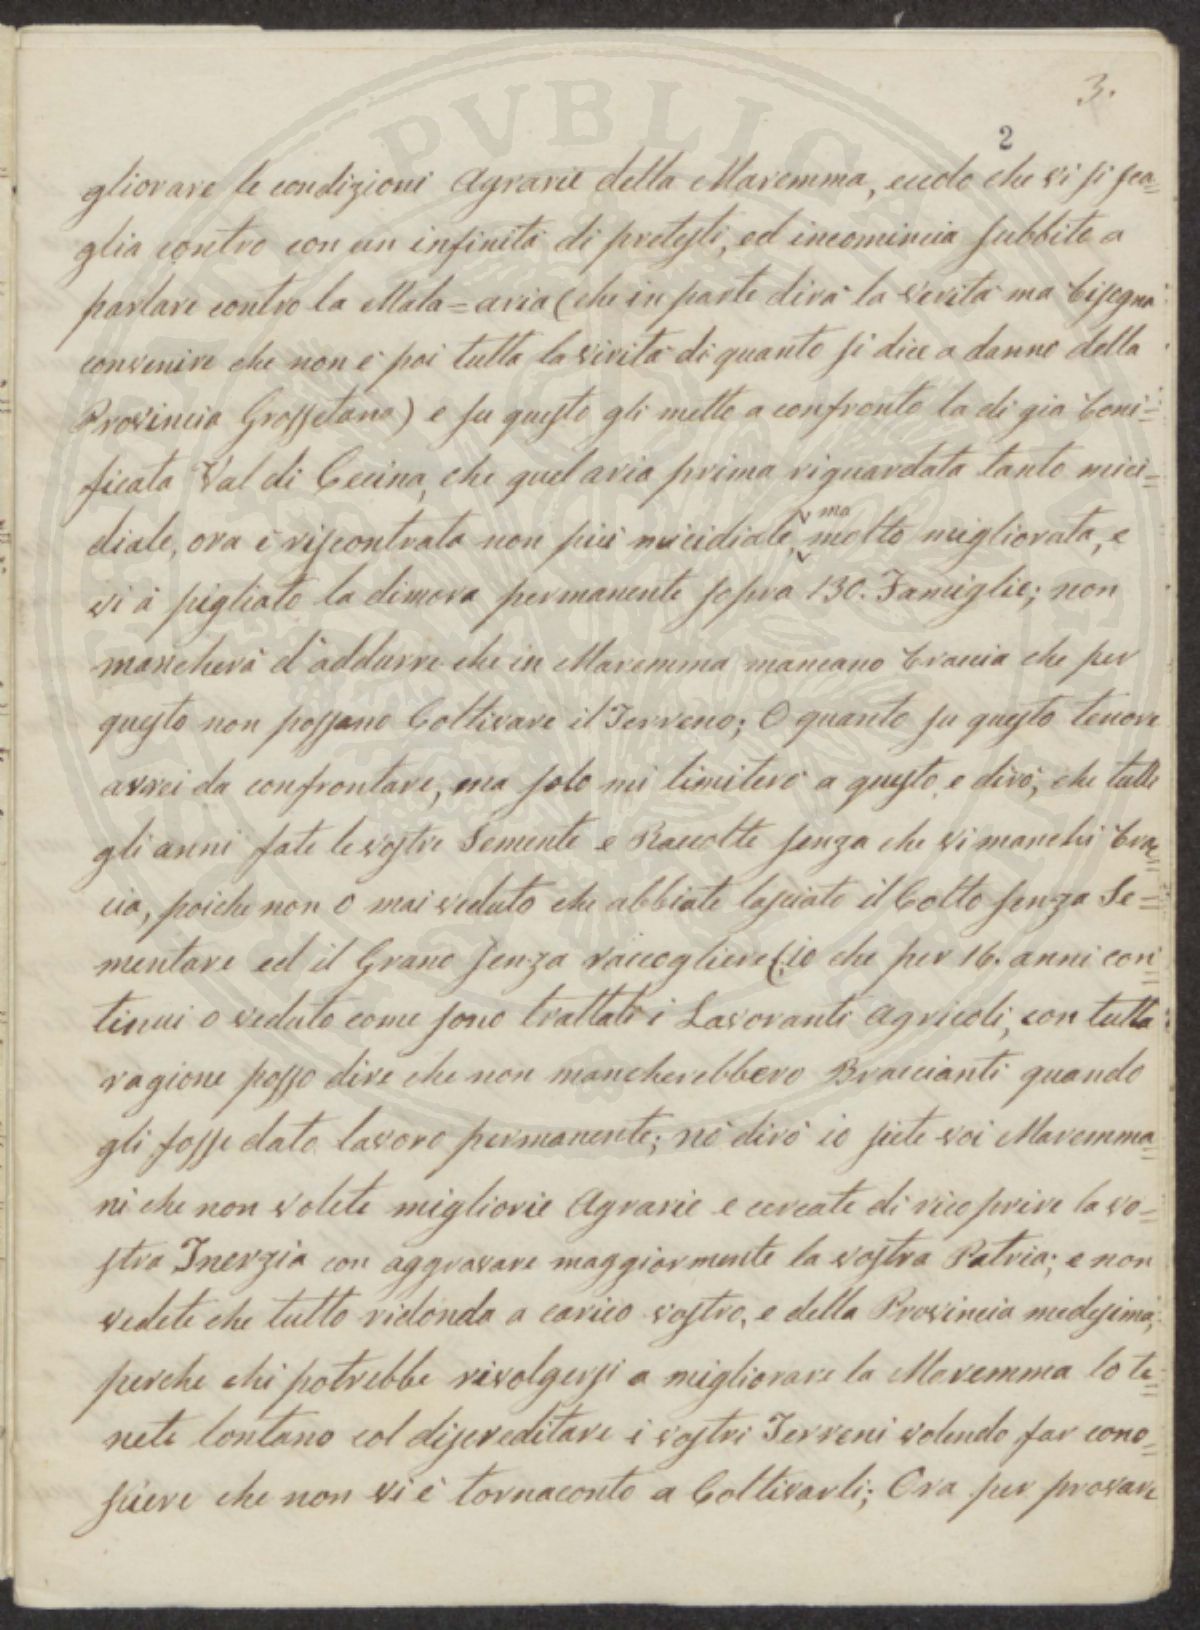 3.
2
gliorare le condizioni Agrarie della Maremma, eccolo che vi si sca=
glia contro con un infinità di pretesti, ed incomincia subbito a
parlare contro la Mala=aria (che in parte dirà la verità ma bisogna
convenire che non è poi tutta la verità di quanto si dice a danno della
Provincia Grossetana) e su questo gli metto a confronto la di già boni=
ficata Val di Cecina, che quel aria prima riguardata tanto mici=
diale, ora è riscontrata non più micidiale, ma molto migliorata, e
vi à pigliato la dimora permanente sopra 130. Famiglie; non
mancherà d'addurre che in Maremma mancano braccia che per
questo non possano Coltivare il Terreno; O quanto su questo tenore
avrei da confrontare, ma solo mi limiterò a questo e dirò, che tutti
gli anni fate le vostre Semente e Raccolte senza che vi manchi bra=
cia, poiche non ò mai veduto che abbiate lasciato il Colto senza Se=
mentare ed il Grano senza raccogliere (io che per 16. anni con=
tinui ò veduto come sono trattati i Lavoranti Agricoli, con tutta
ragione posso dire che non mancherebbero Braccianti quando
gli fosse dato lavoro permanente; nò dirò io siete voi Maremma=
ni che non volete migliorie Agrarie e cercate di ricoprire la vo=
stra Inerzia con aggravare maggiormente la vostra Patria; e non
vedete che tutto ridonda a carico vostro, e della Provincia medesima;
perche chi potrebbe rivolgersi a migliorare la Maremma lo te=
nete lontano col discreditare i vostri Terreni volendo far cono=
scere che non vi è tornaconto a Coltivarli; Ora per provare
PVBLICA